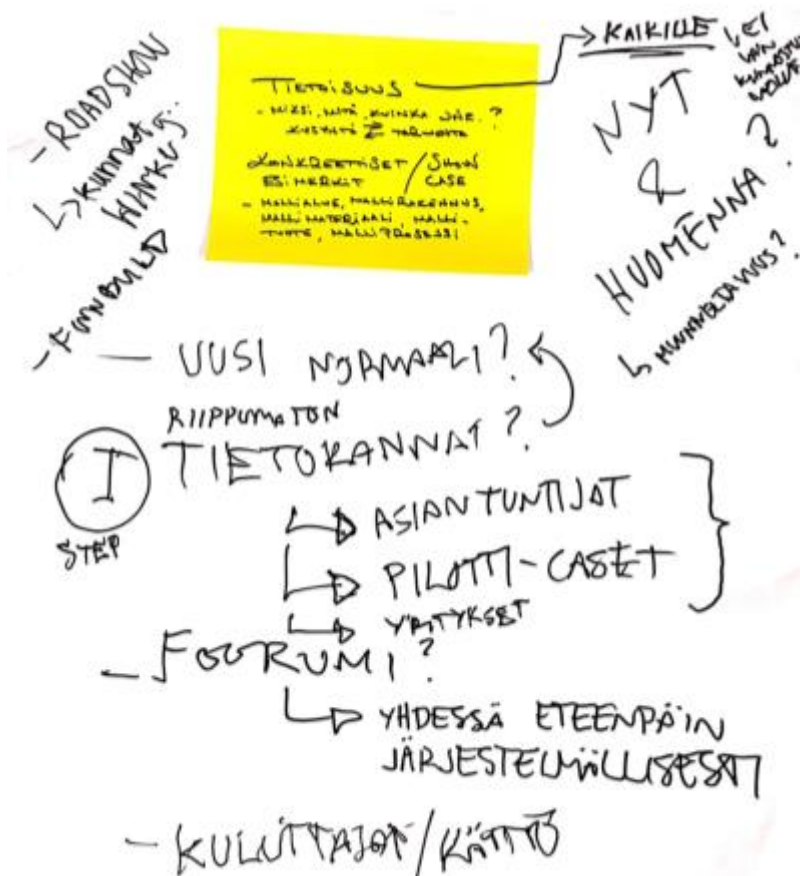 - ROADSHOW
↳ kunnat
- FINNBUILD
TIETOISUUS
- MIKSI, MITÄ, KUINKA JNE. ?
KYSYNTÄ TARJONTA
KONKREETTISET / SHOW
ESIMERKIT CASE
- MALLIALUE, MALLIRAKENNUS,
MALLIMATERIAALI, MALLI-
TUOTE, MALLIPROSESSI
→ KAIKILLE
↳ EI
VAIN
NYT
&
HUOMENNA?
- UUSI NORMAALI?
RIIPPUMATON
I TIETOKANNAT?
STEP
↳ ASIANTUNTIJAT
↳ PILOTTI-CASET
↳ YRITYKSET
- FOORUMI?
↳ YHDESSÄ ETEENPÄIN
JÄRJESTELMÄLLISESTI
- KULUTTAJAT/KÄYTTÖ